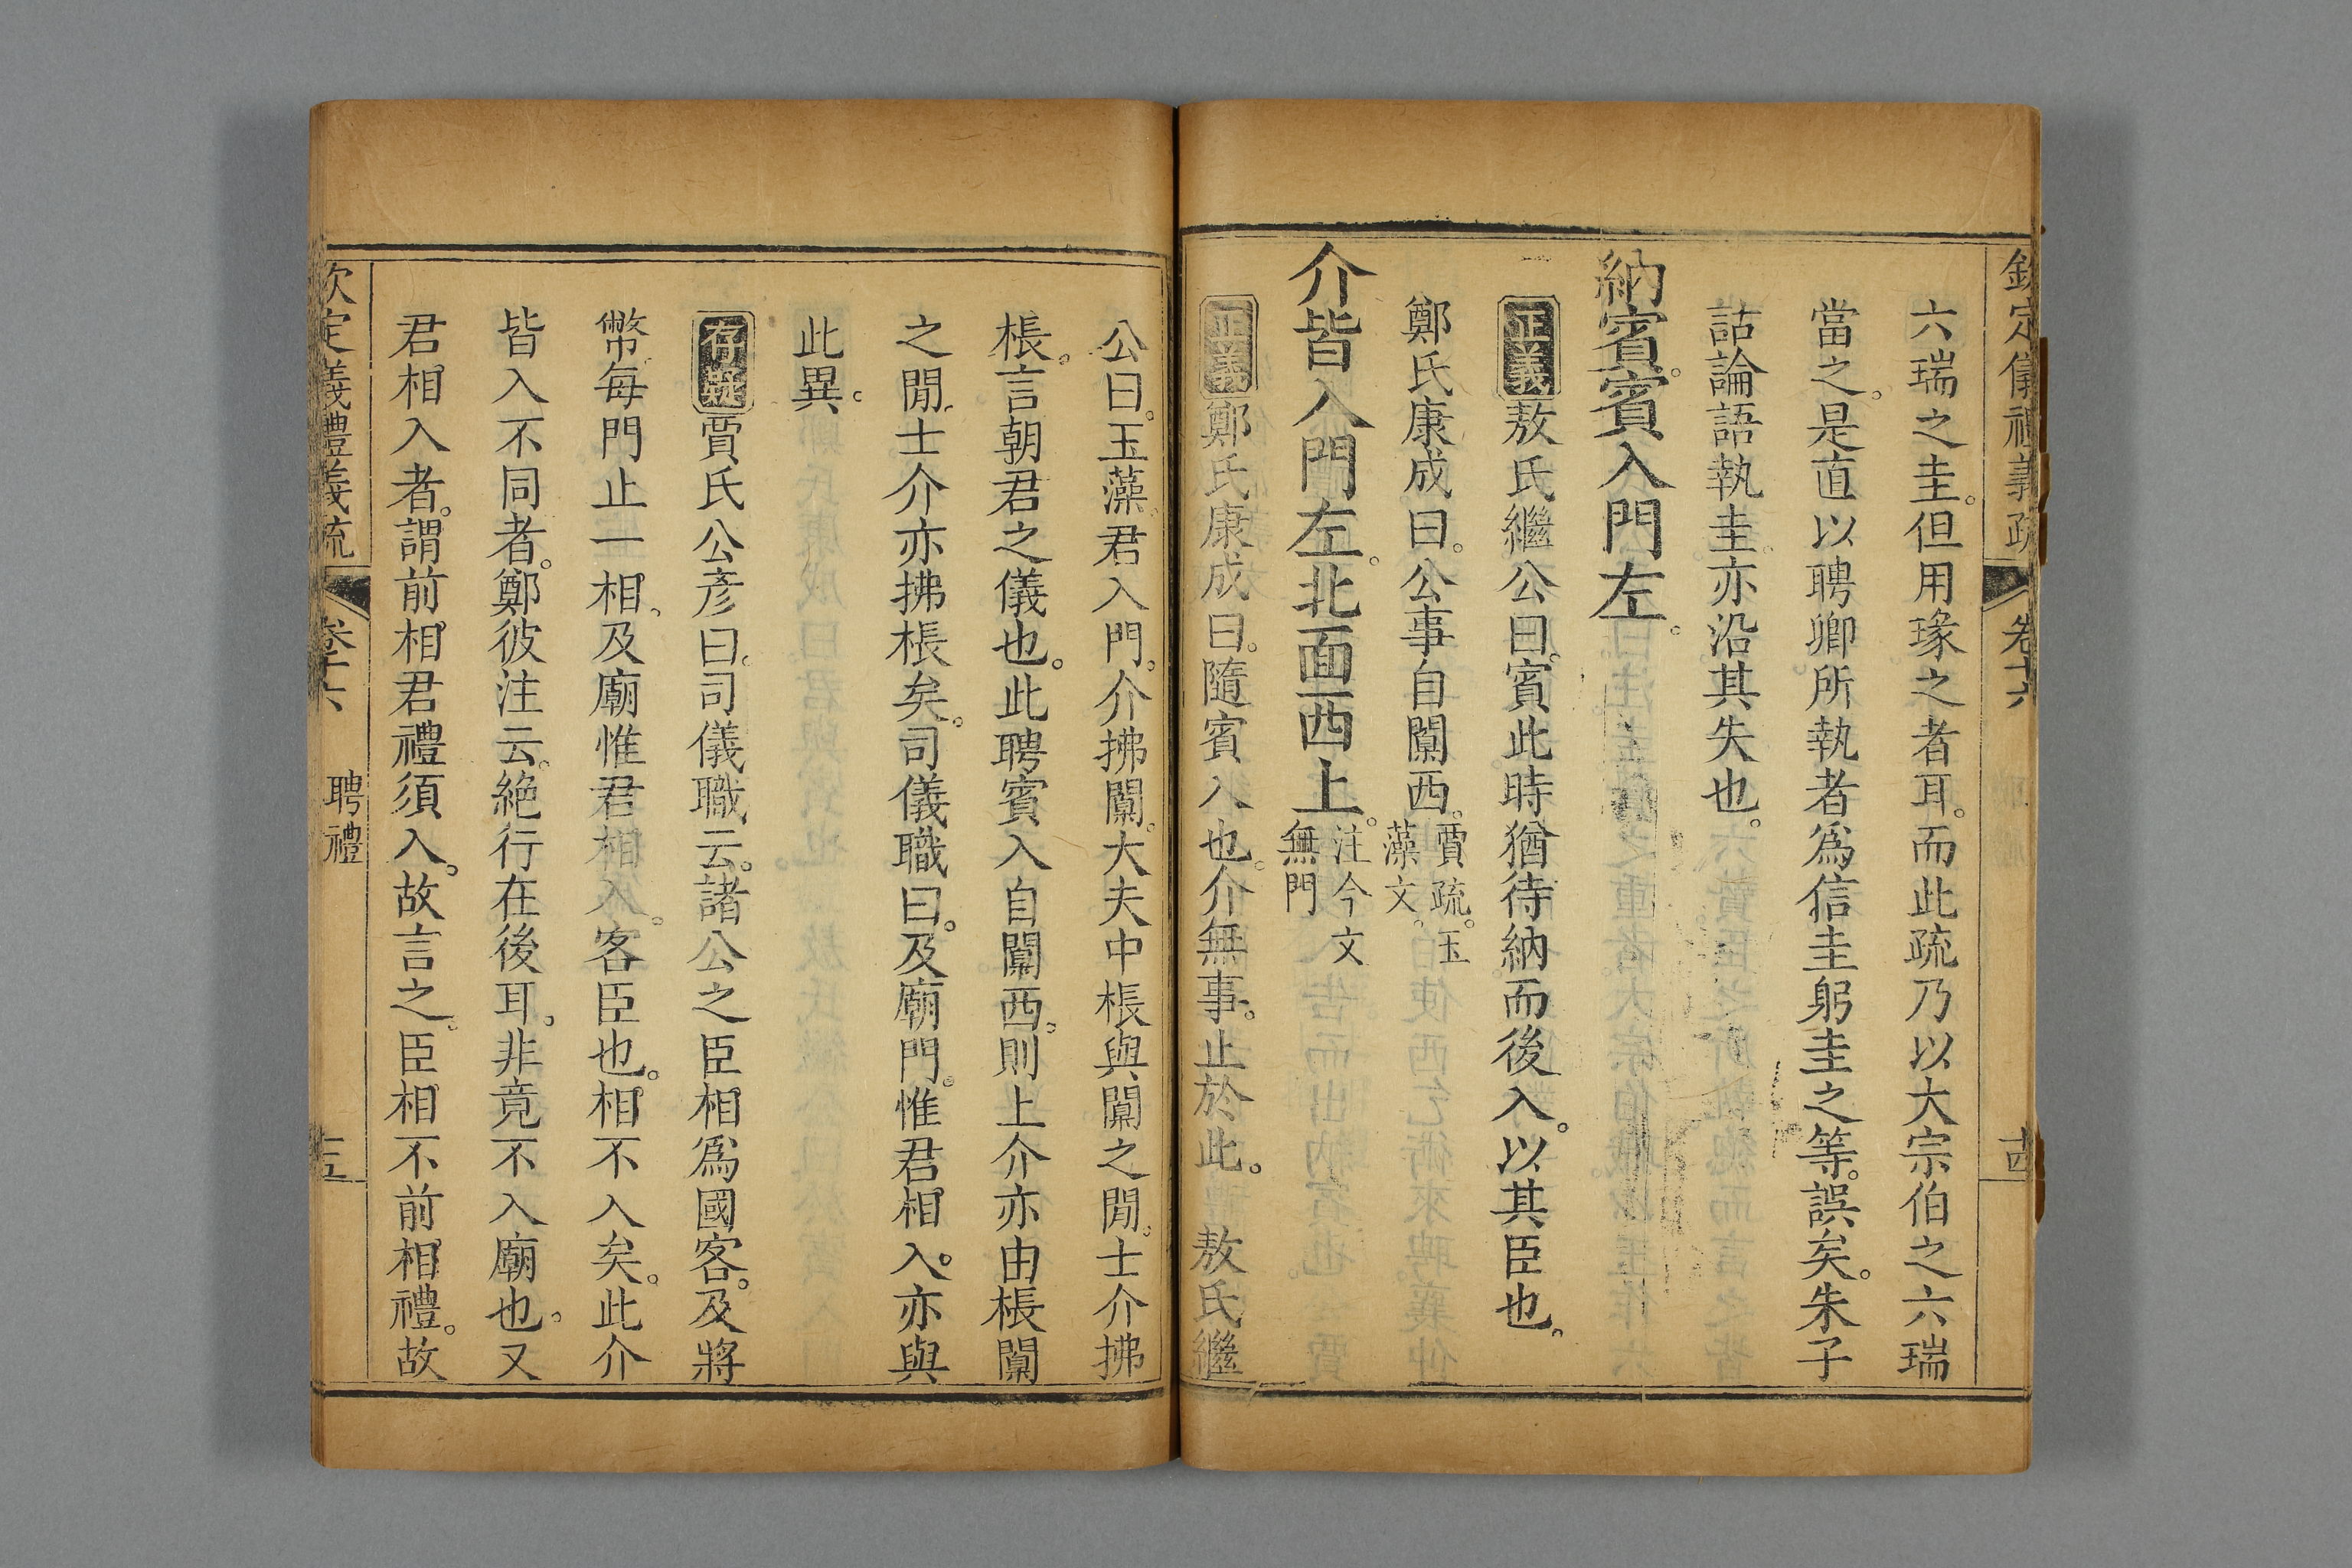 欽定儀禮義疏 卷十六 十四
六瑞之圭。但用瑑之者耳。而此疏乃以大宗伯之六瑞
當之。是直以聘卿所執者為信圭躬圭之等。誤矣。朱子
詁論語執圭。亦沿其失也。
納賓。賓入門左。
正義敖氏繼公曰。賓此時猶待納而後入。以其臣也。
鄭氏康成曰。公事自闑西。賈疏。玉藻文。
介皆入門左。北面西上。注今文無門
正義鄭氏康成曰。隨賓入也。介無事。止於此。 敖氏繼
公曰。玉藻。君入門。介拂闑。大夫中棖與闑之閒。士介拂
棖。言朝君之儀也。此聘賓入自闑西。則上介亦由棖闑
之閒。士介亦拂棖矣。司儀職曰。及廟門。惟君相入。亦與
此異。
存疑賈氏公彥曰。司儀職云。諸公之臣相為國客。及將
幣。每門止一相。及廟惟君相入。客臣也。相不入矣。此介
皆入不同者。鄭彼注云。絕行在後耳。非竟不入廟也。又
君相入者。謂前相君禮須入。故言之。臣相不前相禮。故
欽定儀禮義疏 卷十六 聘禮 十五